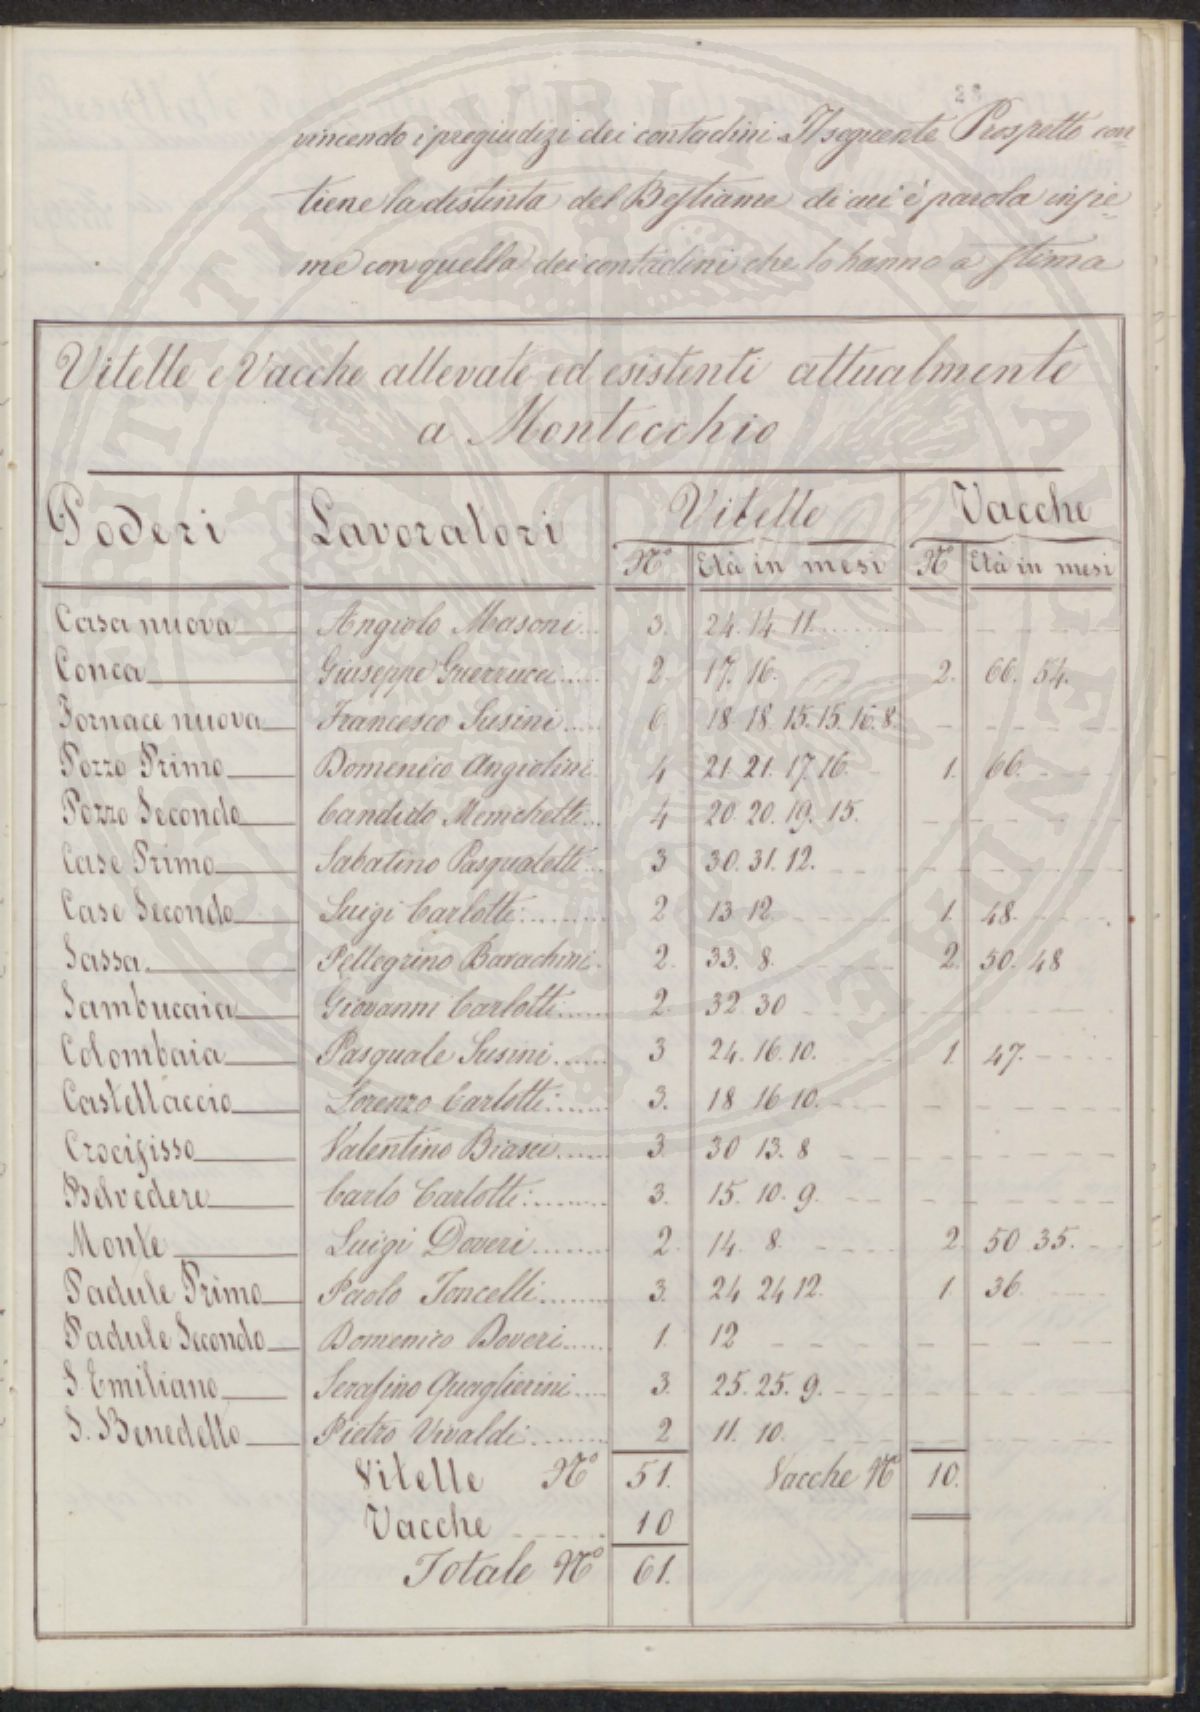 28
vincendo i pregiudizi dei contadini. Il seguente Prospetto con-
tiene la distinta del Bestiame di cui è parola insie-
me con quella dei contadini che lo hanno a stima
Vitelle e Vacche allevate ed esistenti attualmente
a Montecchio
Poderi Lavoratori Vitelle Vacche
Nº Età in mesi Nº Età in mesi
Casa nuova Angiolo Masoni 3. 24. 14. 11.
Conca Giuseppe Guerrucci 2. 17. 16. 2. 66. 54.
Fornace nuova Francesco Susini 6. 18. 18. 15. 15. 16. 8.
Pozzo Primo Domenico Angiolini 4 21. 21. 17. 16. 1. 66.
Pozzo Secondo Candido Menichetti 4 20. 20. 19. 15.
Case Primo Sabatino Pasqualetti 3 30. 31. 12.
Case Secondo Luigi Carlotti 2 13. 12. 1. 48.
Sassa Pellegrino Barachini 2. 33. 8. 2. 50. 48
Sambucaia Giovanni Carlotti 2. 32. 30
Colombaia Pasquale Susini 3 24. 16. 10. 1. 47.
Castellaccio Lorenzo Carlotti 3. 18 16 10.
Crocifisso Valentino Biasci 3. 30 13. 8
Belvedere Carlo Carlotti 3. 15. 10. 9.
Monte Luigi Doveri 2. 14. 8. 2. 50. 35.
Padule Primo Paolo Toncelli 3. 24 24 12. 1. 36
Padule Secondo Domenico Doveri 1. 12
S. Emiliano Serafino Quaglierini 3. 25. 25. 9.
S. Benedetto Pietro Vivaldi 2 11. 10.
Vitelle Nº 51. Vacche Nº 10.
Vacche 10
Totale Nº 61.